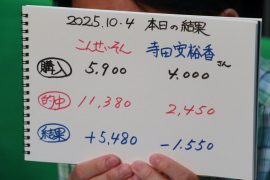 2025.10.4 本日の結果
こんせいそん 寺田安裕香さん
購入 5,900 4,000
的中 11,380 2,450
結果 +5,480 -1,550